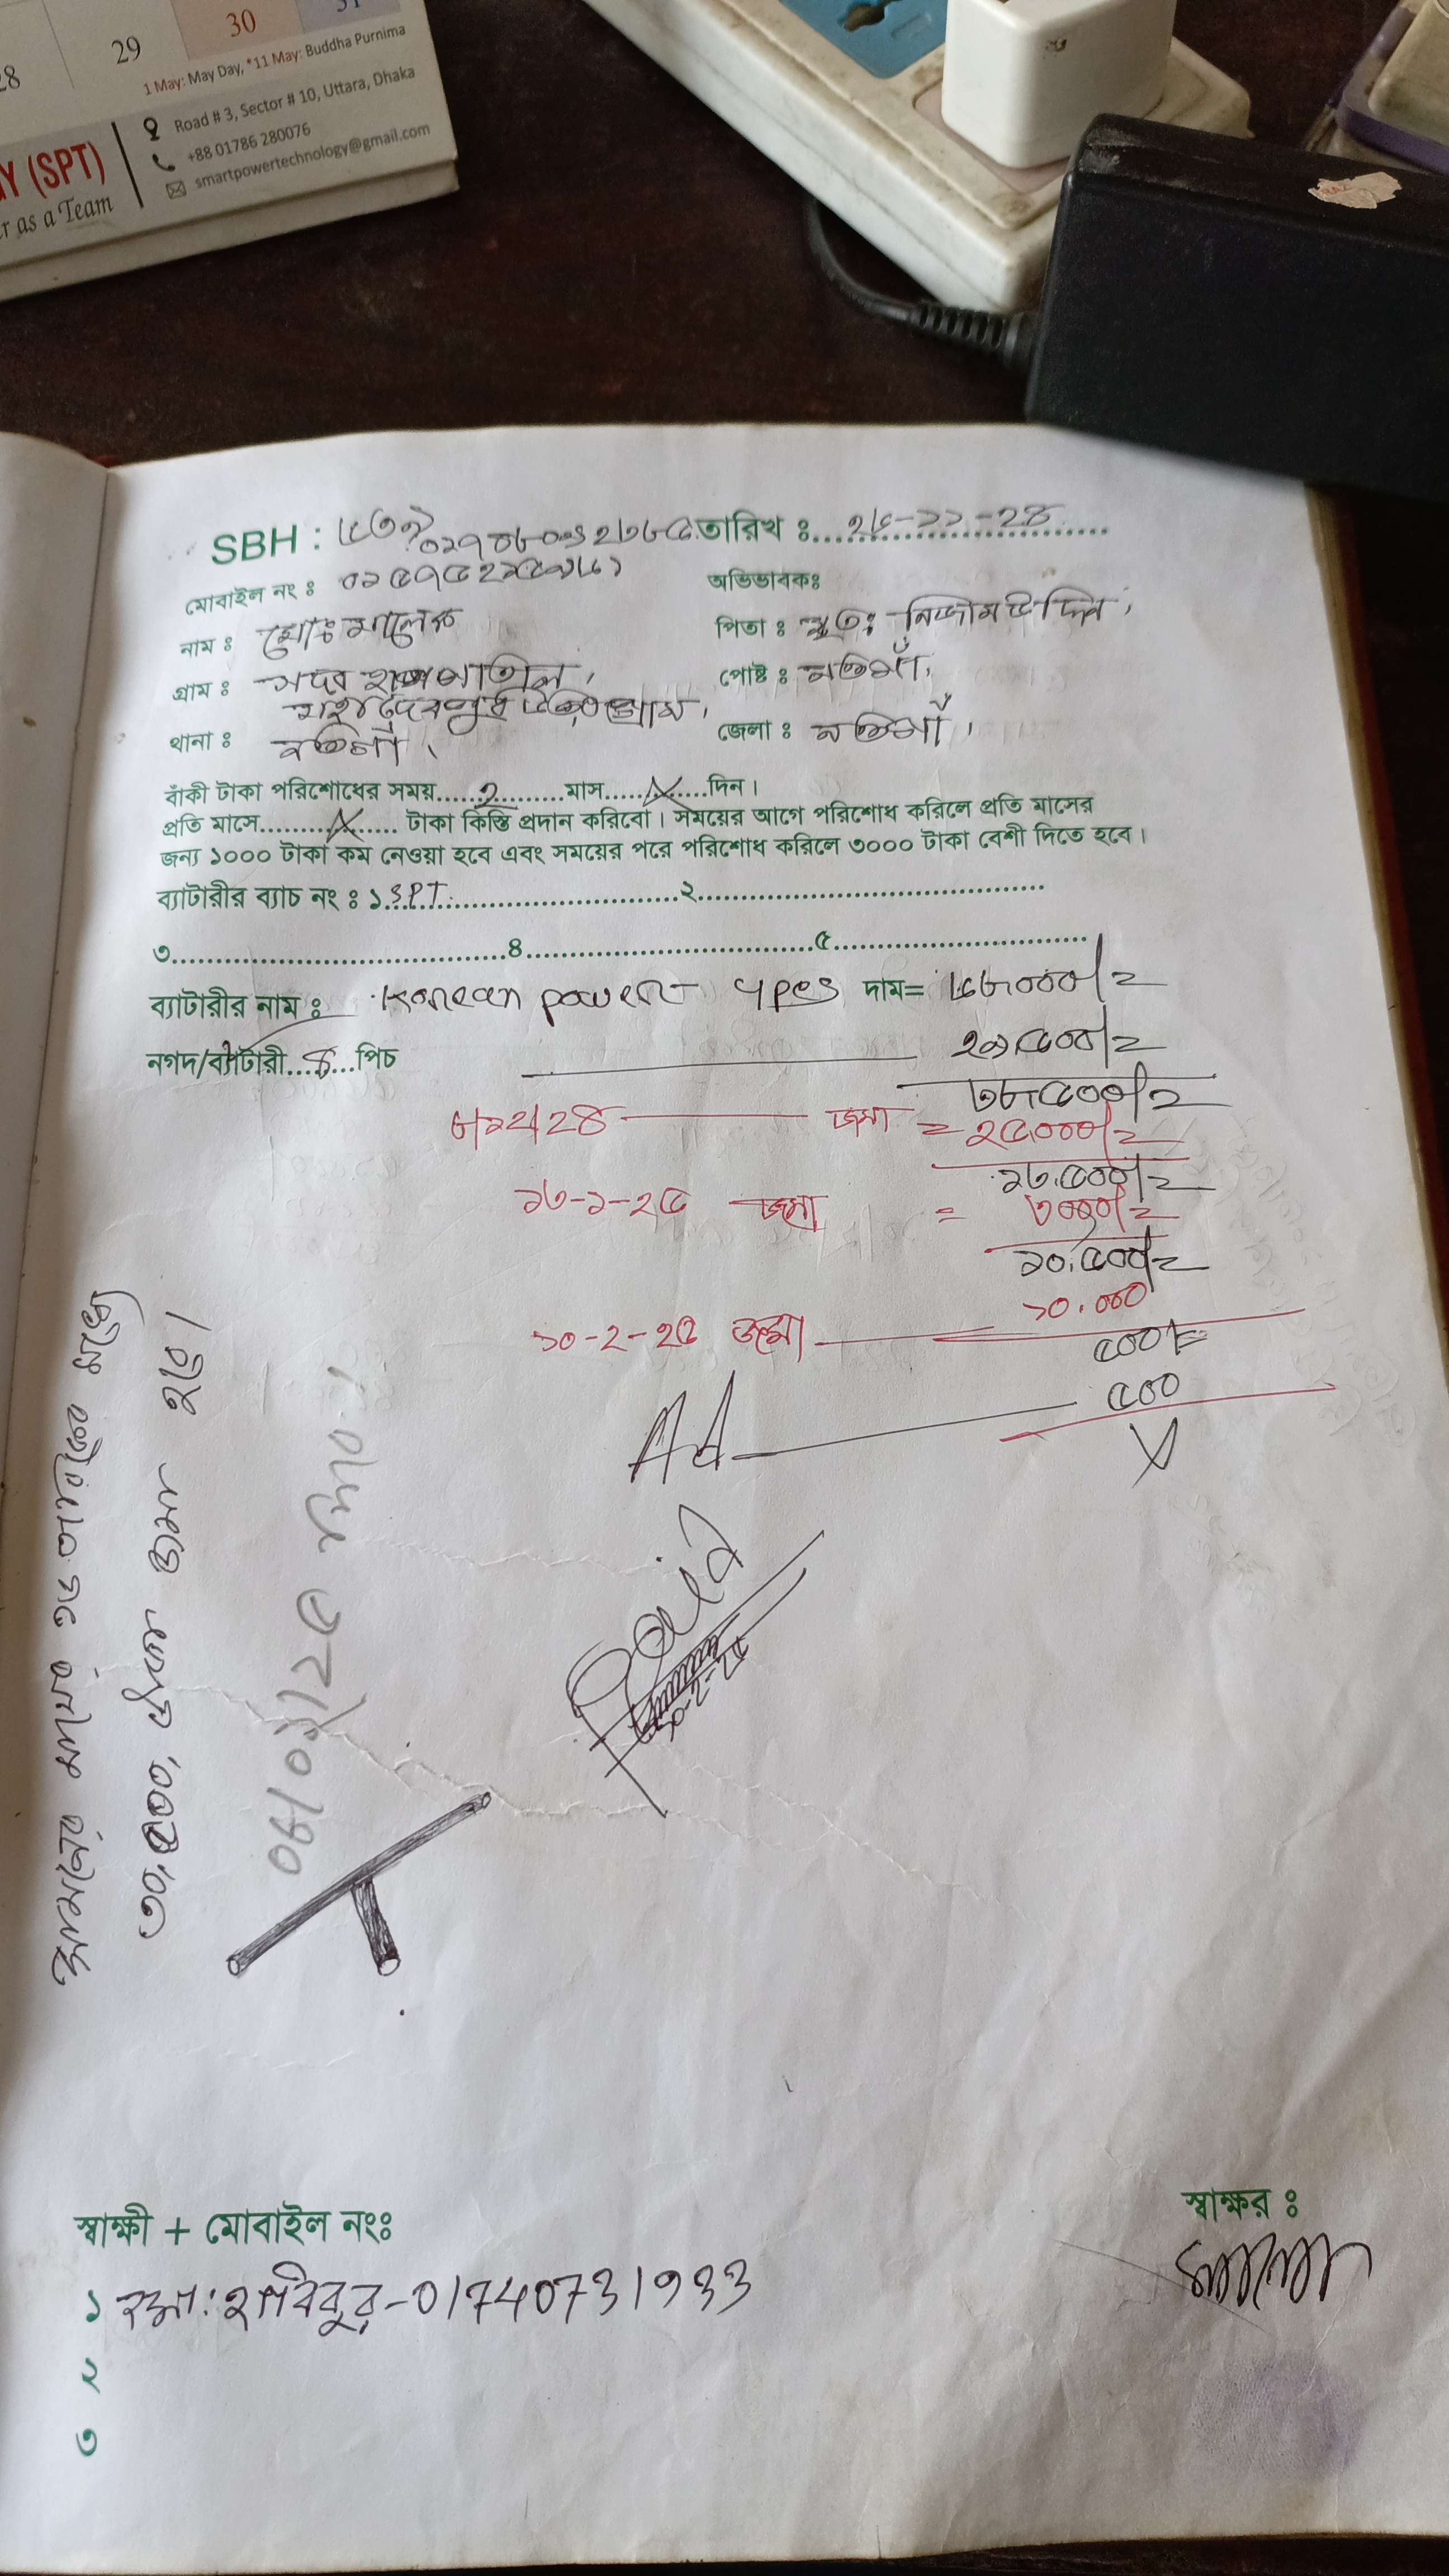 28
29
30
31
1 May: May Day, *11 May: Buddha Purnima
Road # 3, Sector # 10, Uttara, Dhaka
+88 01786 280076
smartpowertechnology@gmail.com
Y (SPT)
r as a Team
SBH : তারিখ ঃ 26-১১-28
মোবাইল নং ঃ
অভিভাবকঃ
নাম ঃ মোঃ মালেক
পিতা ঃ মৃতঃ নিজাম উদ্দিন,
গ্রাম ঃ সদর হাসপাতাল,
পোষ্ট ঃ নওগাঁ,
থানা ঃ নওগাঁ।
জেলা ঃ নওগাঁ।
বাঁকী টাকা পরিশোধের সময়......২.........মাস.....X......দিন।
প্রতি মাসে..........X...... টাকা কিস্তি প্রদান করিবো। সময়ের আগে পরিশোধ করিলে প্রতি মাসের
জন্য ১০০০ টাকা কম নেওয়া হবে এবং সময়ের পরে পরিশোধ করিলে ৩০০০ টাকা বেশী দিতে হবে।
ব্যাটারীর ব্যাচ নং ঃ ১.S.P.T...........২..........
৩..........৪..........৫..........
ব্যাটারীর নাম ঃ Korean power 4 pcs দাম= ৬৮০০০/=
নগদ/ব্যাটারী....৪...পিচ
২৯৫০০/=
৩৮৫০০/=
জমা = ২৫০০০/=
১৩,৫০০/=
১৩-১-২৫ জমা = ৩০০০/=
১০,৫০০/=
১০-2-২৫ জমা ১০,০০০
৫০০/=
Ad ৫০০
X
Paid
১০-২-২৫
মাসের ২৫ তারিখের মধ্যে
৩০,৫০০, টাকা জমা হবে।
স্বাক্ষী + মোবাইল নংঃ
স্বাক্ষর ঃ
১ মোঃ হাবিবুর-01740731933
২
৩